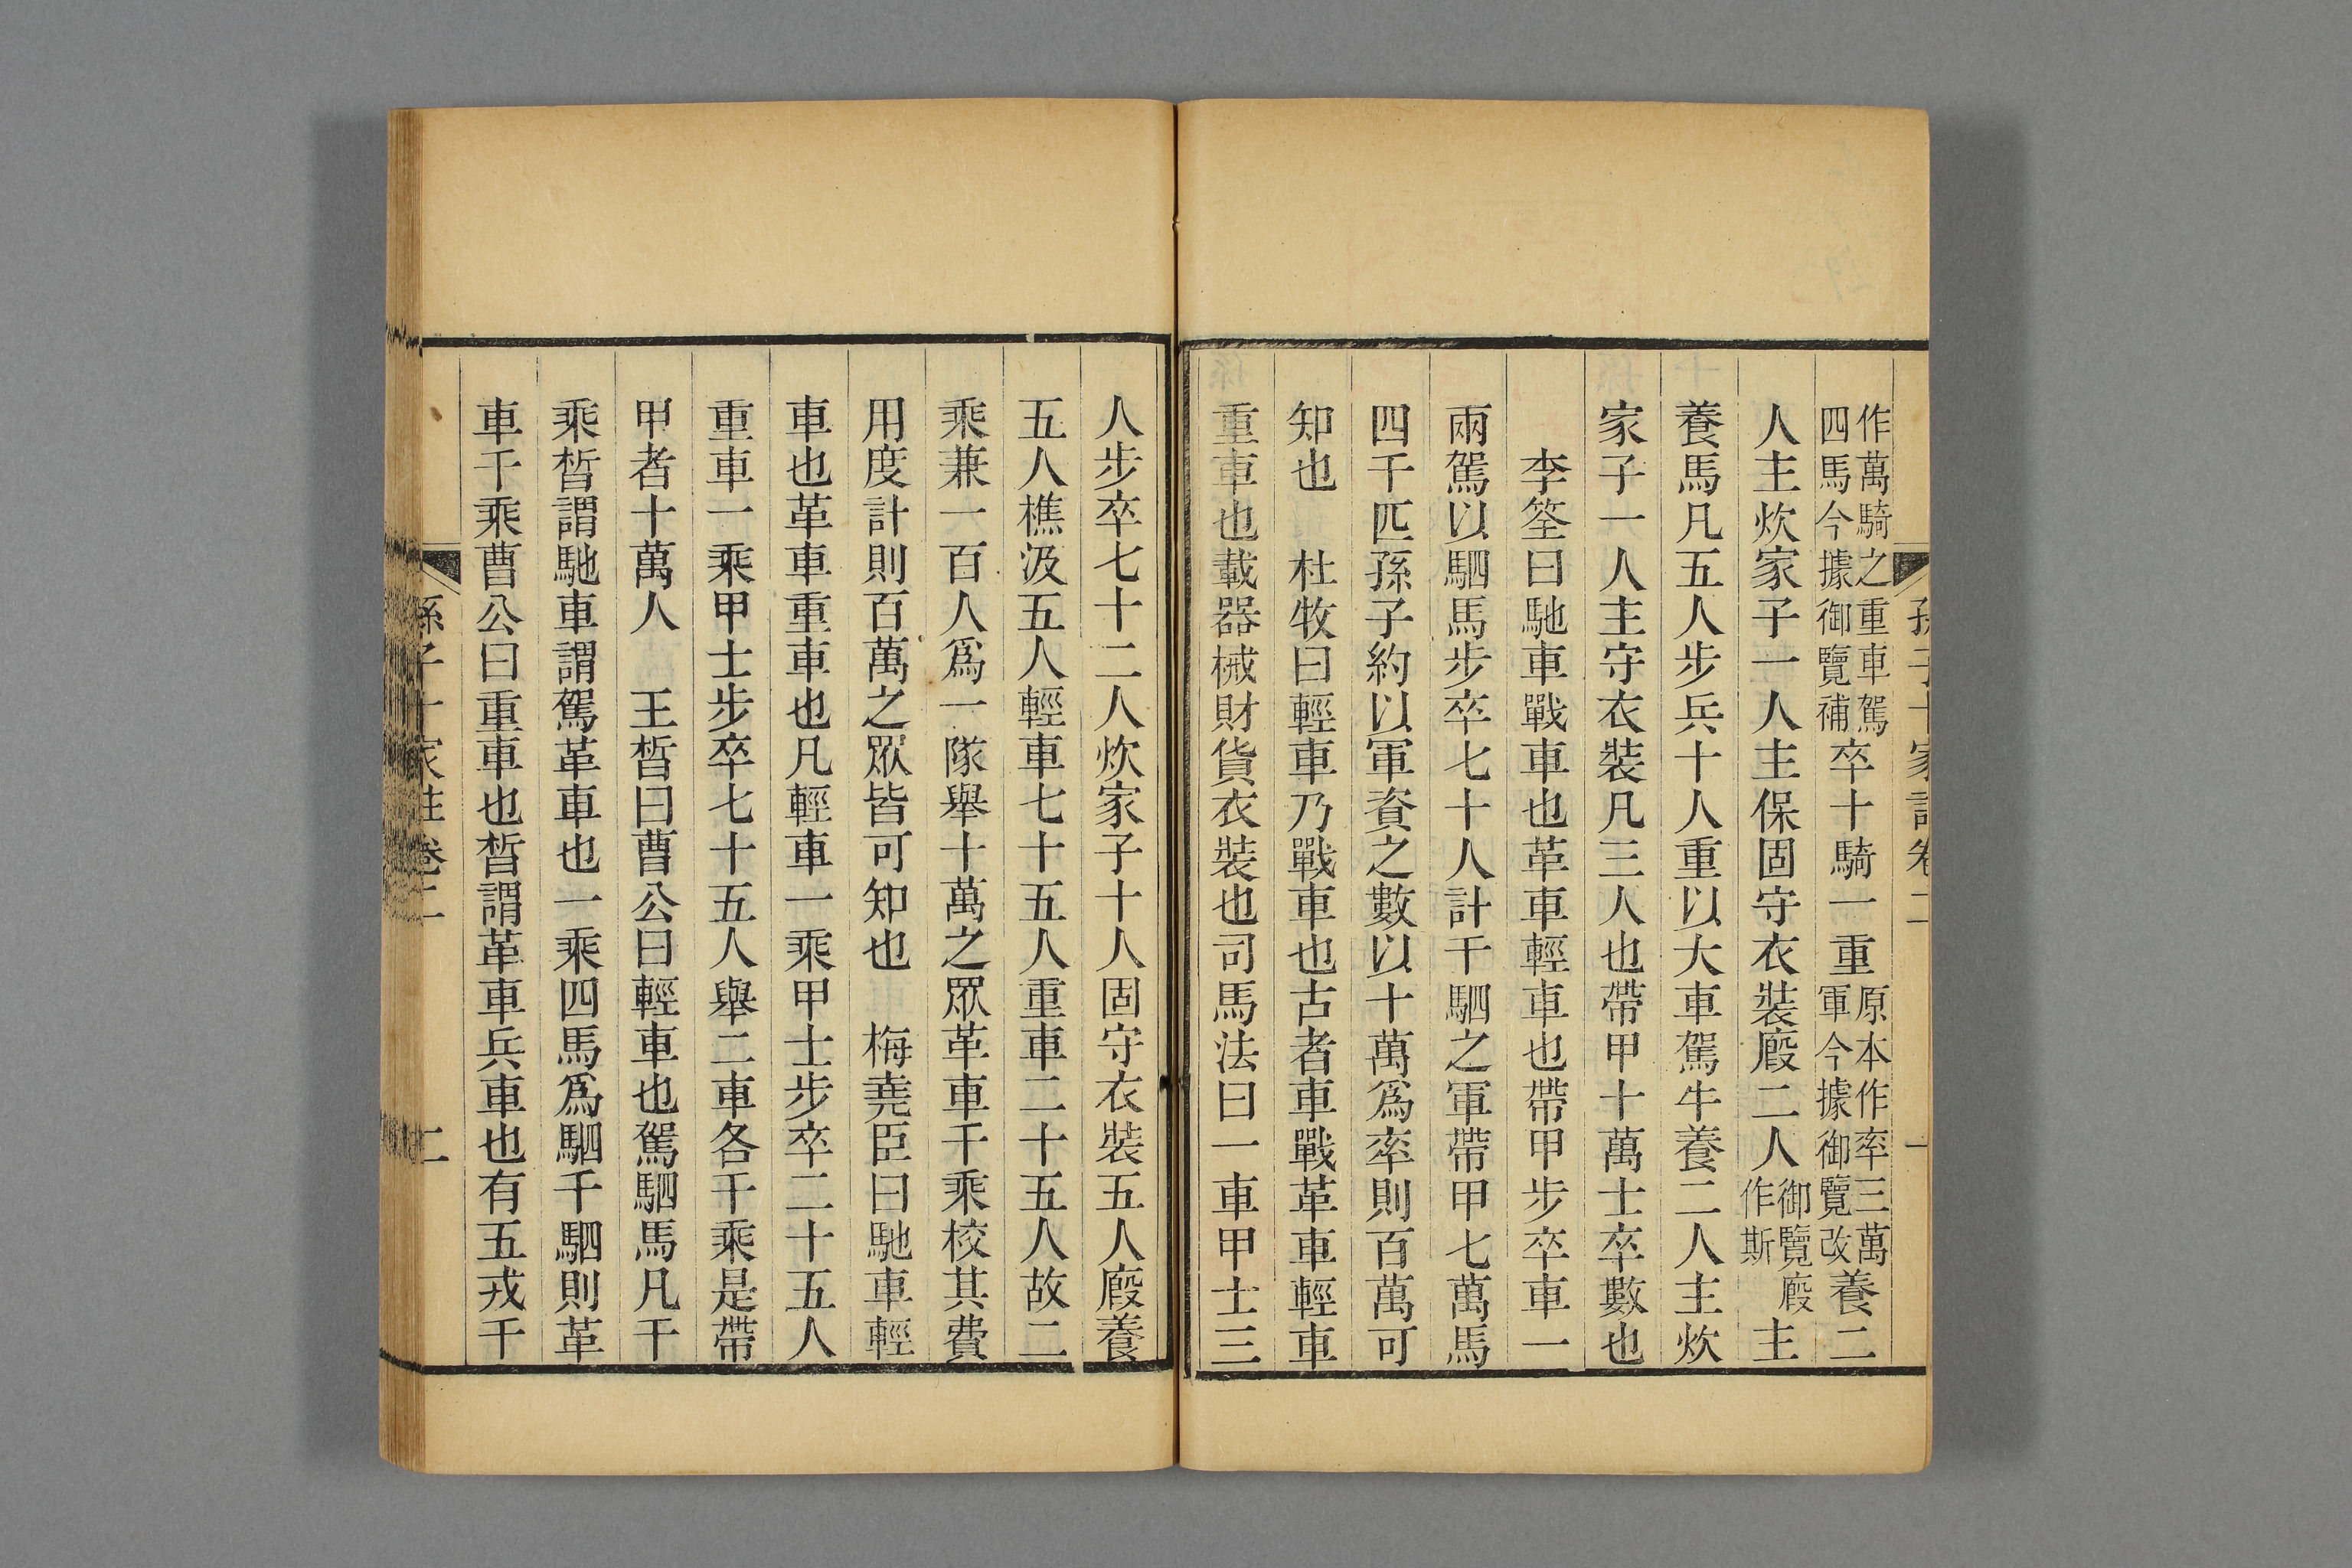 孫子十家註卷二 一
作萬騎之重車駕四馬今據御覽補卒十騎一重原本作率三萬軍今據御覽改養二
人主炊家子一人主保固守衣裝廄二人御覽廄作斯主
養馬凡五人步兵十人重以大車駕牛養二人主炊
家子一人主守衣裝凡三人也帶甲十萬士卒數也
李筌曰馳車戰車也革車輕車也帶甲步卒車一
兩駕以駟馬步卒七十人計千駟之軍帶甲七萬馬
四千匹孫子約以軍資之數以十萬爲率則百萬可
知也　杜牧曰輕車乃戰車也古者車戰革車輕車
重車也載器械財貨衣裝也司馬法曰一車甲士三
人步卒七十二人炊家子十人固守衣裝五人廄養
五人樵汲五人輕車七十五人重車二十五人故二
乘兼一百人爲一隊舉十萬之眾革車千乘校其費
用度計則百萬之眾皆可知也　梅堯臣曰馳車輕
車也革車重車也凡輕車一乘甲士步卒二十五人
重車一乘甲士步卒七十五人舉二車各千乘是帶
甲者十萬人　王晳曰曹公曰輕車也駕駟馬凡千
乘晳謂馳車謂駕革車也一乘四馬爲駟千駟則革
車千乘曹公曰重車也晳謂革車兵車也有五戎千
孫子十家註卷二 二